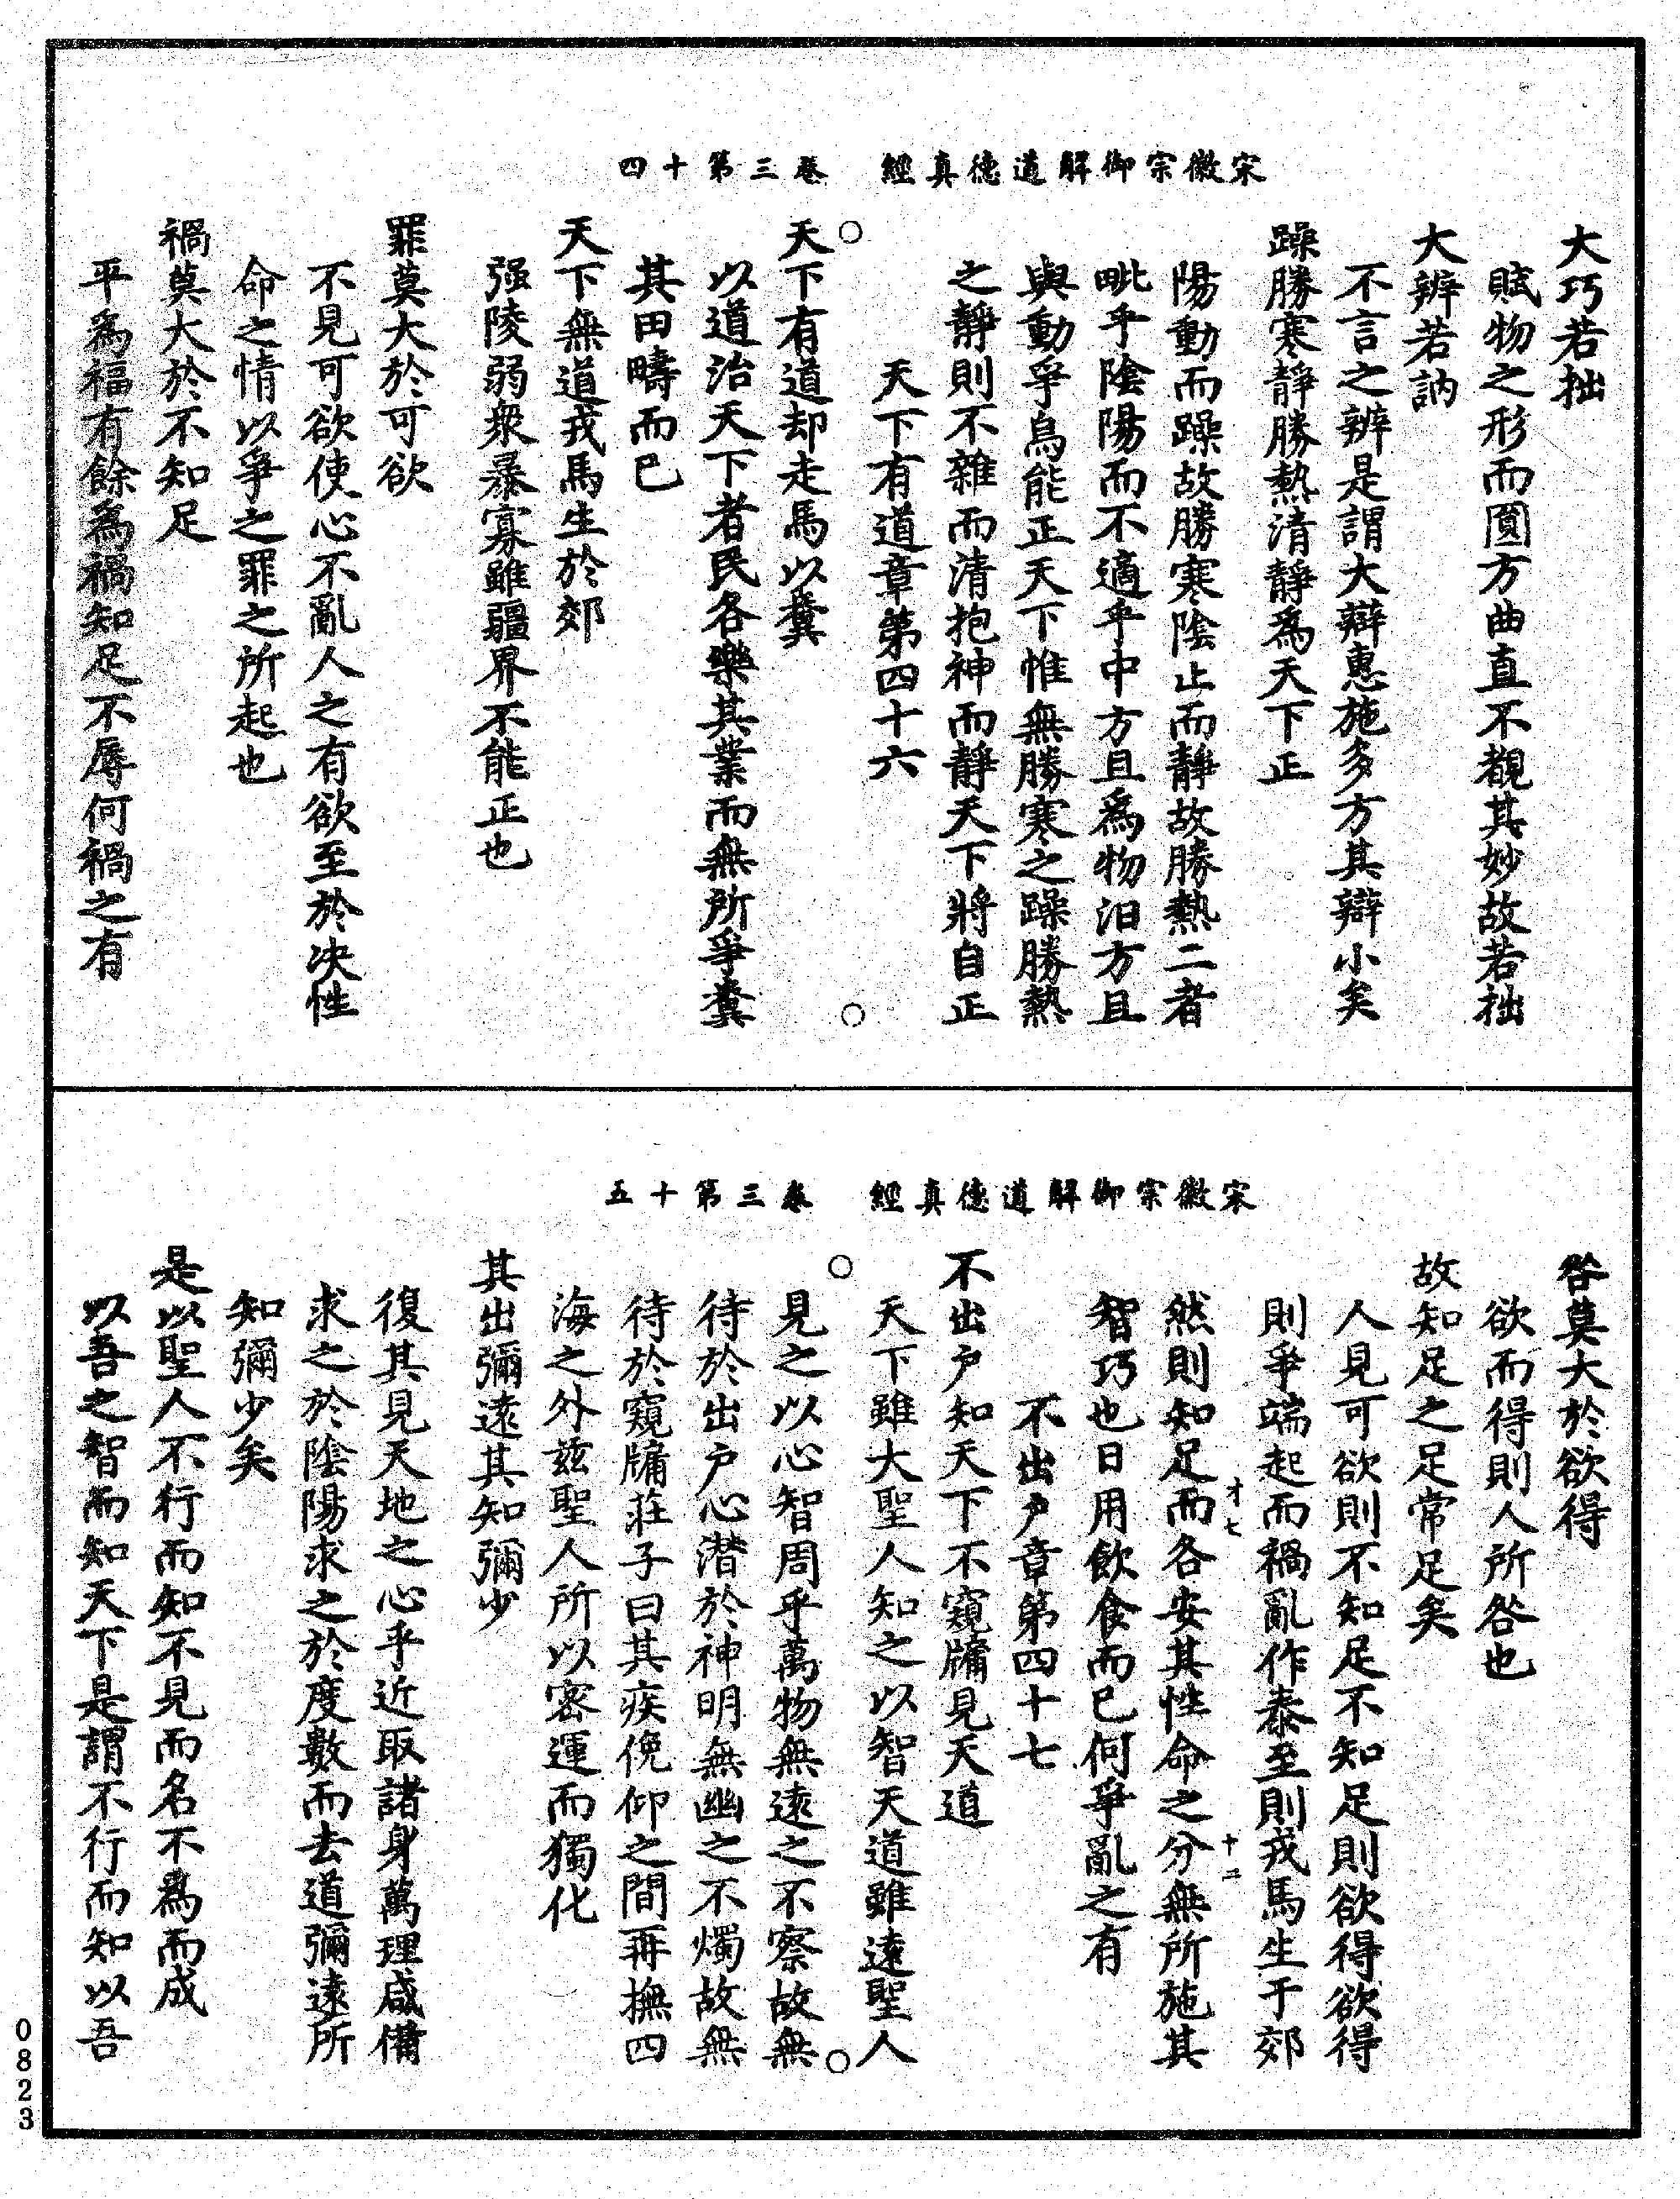 宋徽宗御解道德真經　卷三第十四
大巧若拙
賦物之形而圓方曲直不覩其妙故若拙
大辨若訥
不言之辨是謂大辯惠施多方其辯小矣
躁勝寒靜勝熱清靜為天下正
陽動而躁故勝寒陰止而靜故勝熱二者
毗乎陰陽而不適乎中方且為物汨方且
與動爭烏能正天下惟無勝寒之躁勝熱
之靜則不雜而清抱神而靜天下將自正
天下有道章第四十六
天下有道却走馬以糞
以道治天下者民各樂其業而無所爭糞
其田疇而已
天下無道戎馬生於郊
强陵弱衆暴寡雖疆界不能正也
罪莫大於可欲
不見可欲使心不亂人之有欲至於决性
命之情以爭之罪之所起也
禍莫大於不知足
平為福有餘為禍知足不辱何禍之有
宋徽宗御解道德真經　卷三第十五
咎莫大於欲得
欲而得則人所咎也
故知足之足常足矣
人見可欲則不知足不知足則欲得欲得
則爭端起而禍亂作泰至則戎馬生于郊
然則知足而各安其性命之分無所施其
才七　十二
智巧也日用飲食而已何爭亂之有
不出戶章第四十七
不出戶知天下不窺牖見天道
天下雖大聖人知之以智天道雖遠聖人
見之以心智周乎萬物無遠之不察故無
待於出戶心潛於神明無幽之不燭故無
待於窺牖莊子曰其疾俛仰之間再撫四
海之外茲聖人所以密運而獨化
其出彌遠其知彌少
復其見天地之心乎近取諸身萬理咸備
求之於陰陽求之於度數而去道彌遠所
知彌少矣
是以聖人不行而知不見而名不為而成
以吾之智而知天下是謂不行而知以吾
0823